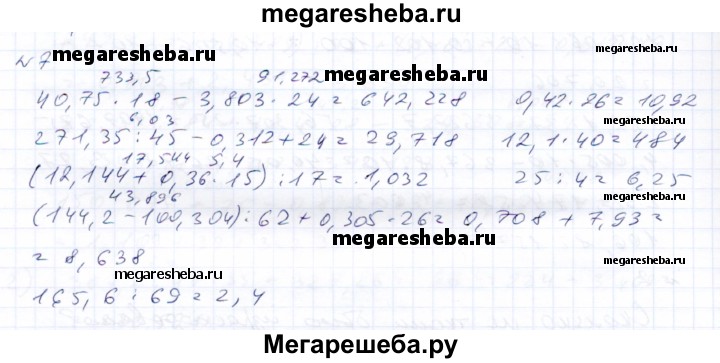 megaresheba.ru
N 7
733,5 91,272 megaresheba.ru megaresheba.ru
40,75 · 18 - 3,803 · 24 = 642,228 0,42 · 26 = 10,92
6,03
271,35 : 45 - 0,312 + 24 = 29,718 12,1 · 40 = 484
17,544 5,4
(12,144 + 0,36 · 15) : 17 = 1,032 25 : 4 = 6,25
43,896
(144,2 - 100,304) : 62 + 0,305 · 26 = 0,708 + 7,93 =
megaresheba.ru megaresheba.ru
= 8,638
megaresheba.ru
165,6 : 69 = 2,4
Мегарешеба.ру